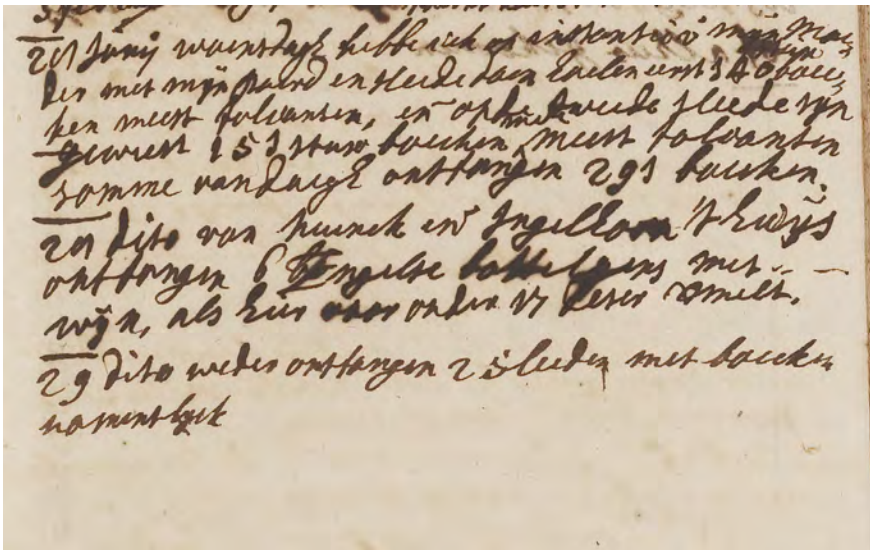 Junij woensdagh hebbe ick op instantie v mijn
der met mijn paard en sleede doen haelen eerst 140 boec-
ken meest folianten, en op de tweede sleede sijn
geweest 151 stuw boecken, meest folianten
somme van daegh ontfangen 291 boecken.
dito van en Ingelhoorn 't huijs
ontfangen 6 Engelse met
wijn, als hier onder 17 deser vermelt.
29 dito weder ontfangen 2 sleeden met boecken
namentlyck